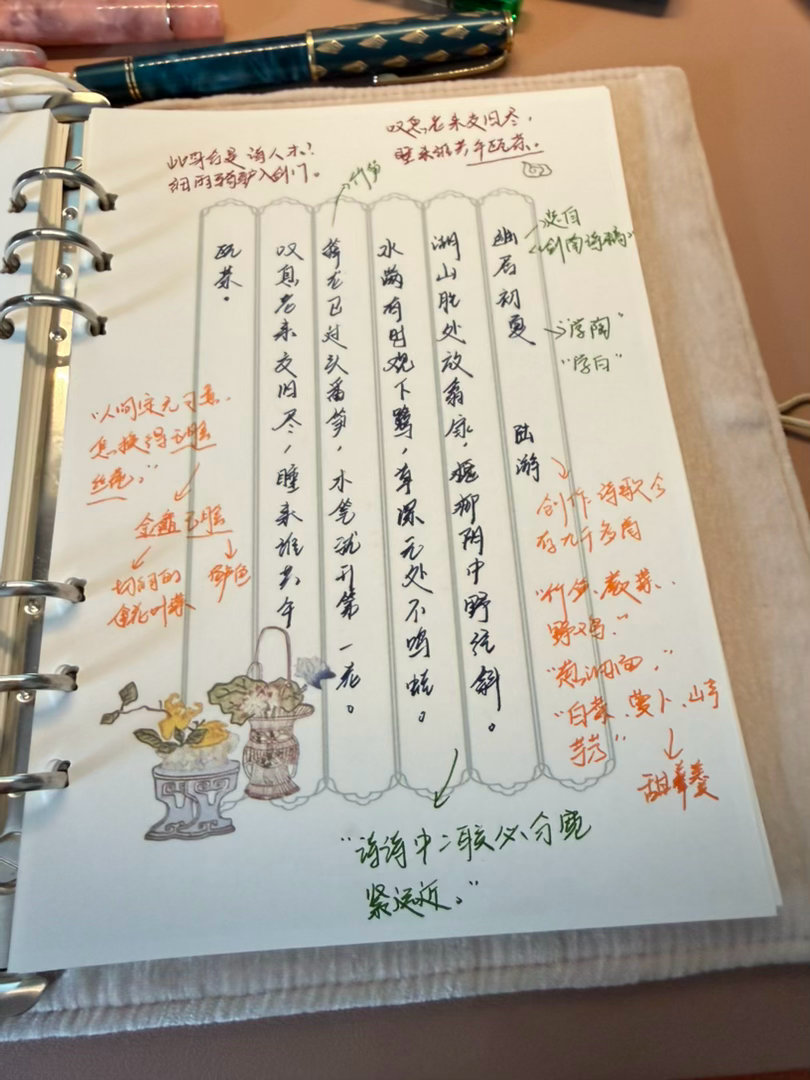 此身合是诗人未?
细雨骑驴入剑门。
叹息老来交旧尽,
睡来谁共午瓯茶。
→竹笋
→选自
《剑南诗稿》
幽居初夏
陆游
湖山胜处放翁家,槐柳阴中野径斜。
水满有时观下鹭,草深无处不鸣蛙。
箨龙已过头番笋,木笔犹开第一花。
叹息老来交旧尽,睡来谁共午
瓯茶。
→"学陶"
"学白"
创作诗歌今
存九千多首
野鸡。"
"葱油面,"
"白菜、萝卜、山芋
芋芳"
甜羹
"人间定无可意,
怎换得玉脍
丝莼。"
金齑玉脍
切细的
鲈鱼
紧远近。"